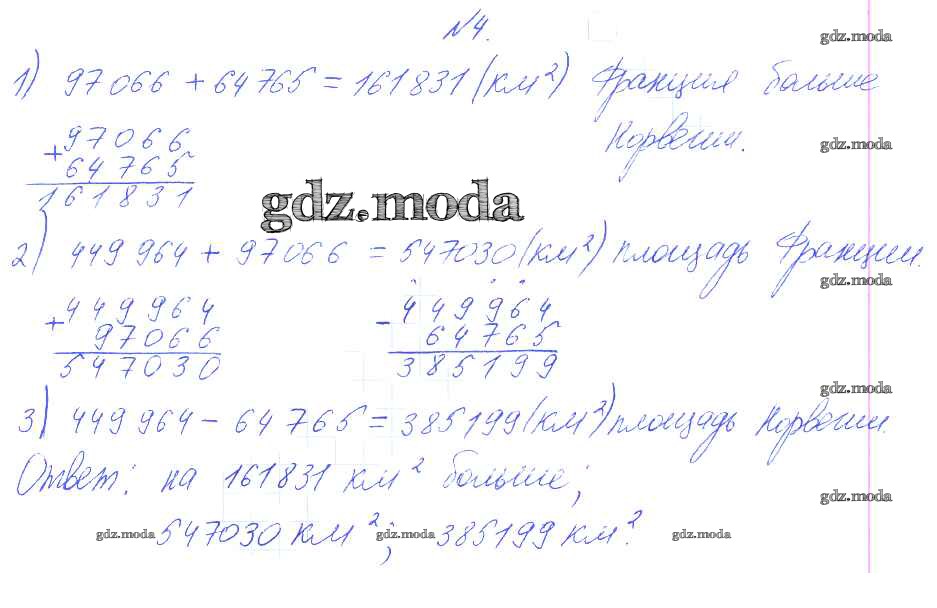 №4.
gdz.moda
1) 97066 + 64765 = 161831 (км²) Франция больше
Норвегии.
gdz.moda
+ 97066
64765
161831
gdz.moda
2) 449964 + 97066 = 547030 (км²) площадь Франции.
gdz.moda
+ 449964
97066
547030
- 449964
64765
385199
gdz.moda
3) 449964 - 64765 = 385199 (км²) площадь Норвегии.
Ответ: на 161831 км² больше;
gdz.moda
547030 км²; 385199 км².
gdz.moda
gdz.moda
gdz.moda
gdz.moda